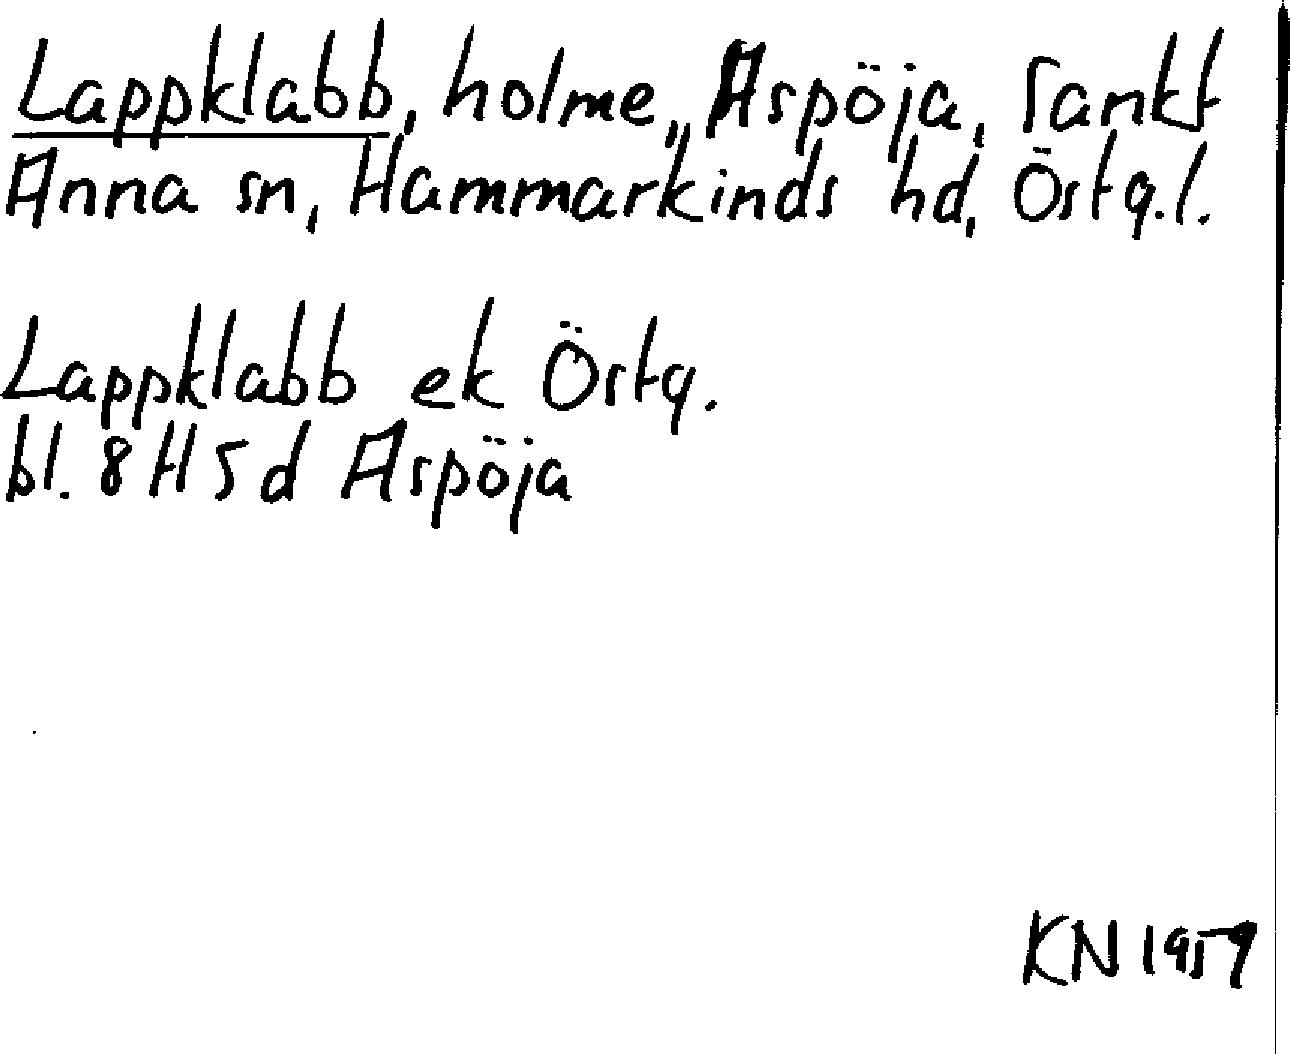 Lappklabb, holme, Aspöja, Sankt
Anna sn, Hammarkinds hd, Östg.l.
Lappklabb ek Östg.
bl. 8H5d Aspöja
KN 1959